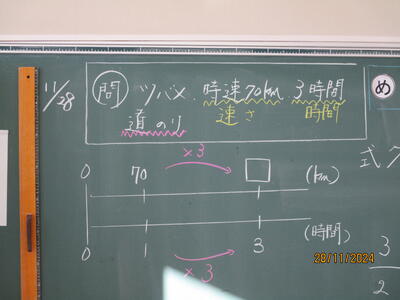 11/28
問 ツバメ. 時速70km. 3時間
道のり 速さ 時間
め
式
0 70 ×3 □ (km)
0 1 3 (時間)
×3
3
2
28/11/2024